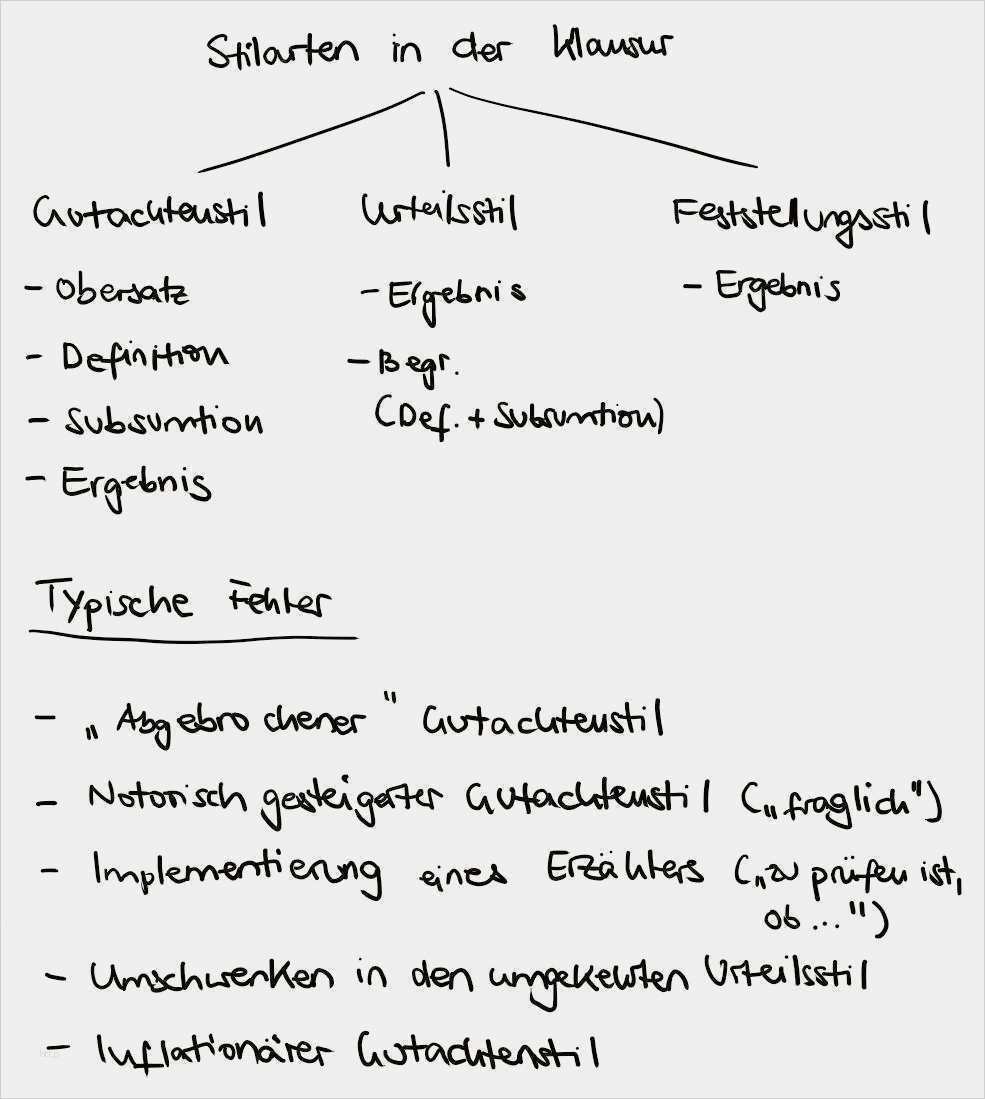 Stilarten in der Klausur
Gutachtenstil
Urteilsstil
Feststellungsstil
- Obersatz
- Definition
- Subsumtion
- Ergebnis
- Ergebnis
- Begr.
(Def. + Subsumtion)
- Ergebnis
Typische Fehler
- „Abgebrochener" Gutachtenstil
- Notorisch gesteigerter Gutachtenstil („fraglich")
- Implementierung eines Erzählers („zu prüfen ist,
ob ...")
- Umschwenken in den umgekehrten Urteilsstil
- Inflationärer Gutachtenstil